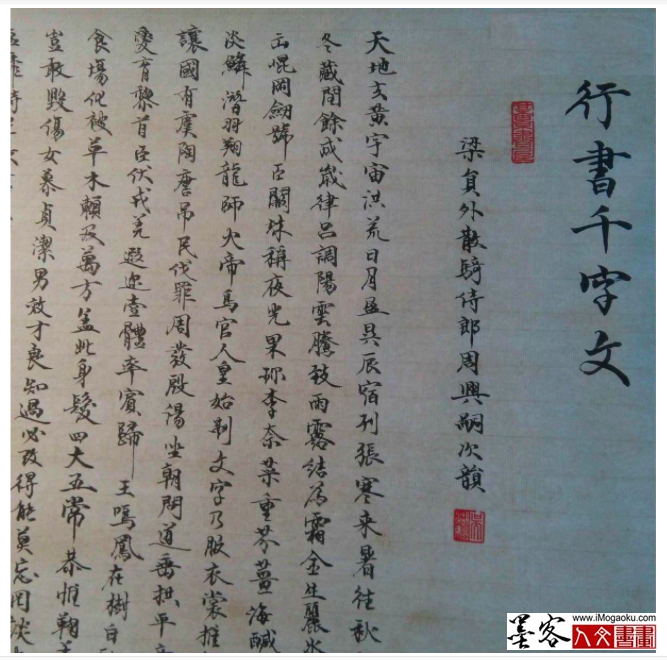 行書千字文
梁員外散騎侍郎周興嗣次韻
天地玄黃宇宙洪荒日月盈昃辰宿列張寒来暑往秋
冬藏閏餘成歲律呂調陽雲騰致雨露結為霜金生麗水
出崐岡劒號巨闕珠稱夜光果珍李柰菜重芥薑海鹹
淡鱗潛羽翔龍師火帝鳥官人皇始制文字乃服衣裳推
讓國有虞陶唐吊民伐罪周發殷湯坐朝問道垂拱平
愛育黎首臣伏戎羌遐迩壹體率賓歸王鳴鳳在樹白
食場化被草木賴及萬方盖此身髮四大五常恭惟鞠
豈敢毀傷女慕貞潔男效才良知過必改得能莫忘罔談
墨客
www.iMogaoku.com
人文書畫